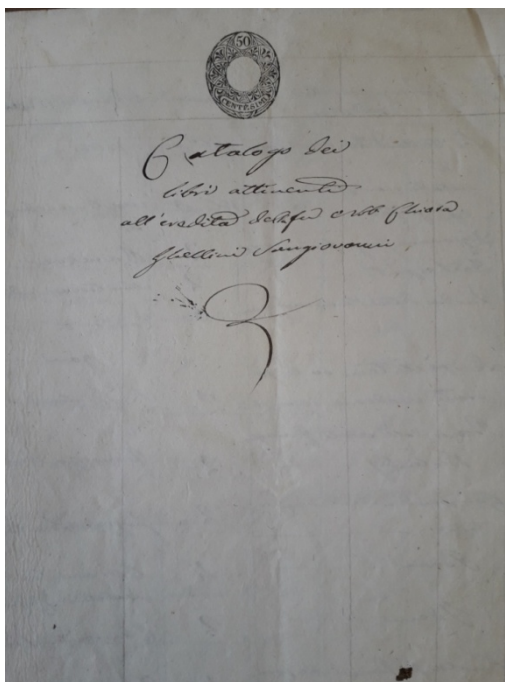 50
CENTESIMI
Catalogo dei
libri attinenti
all'eredità della fu Nob Chiara
Ghellini Sangiovanni